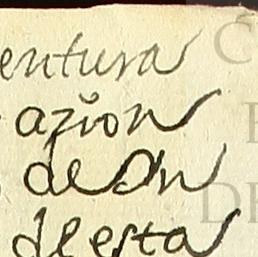 entura
azion
de Dn
desta